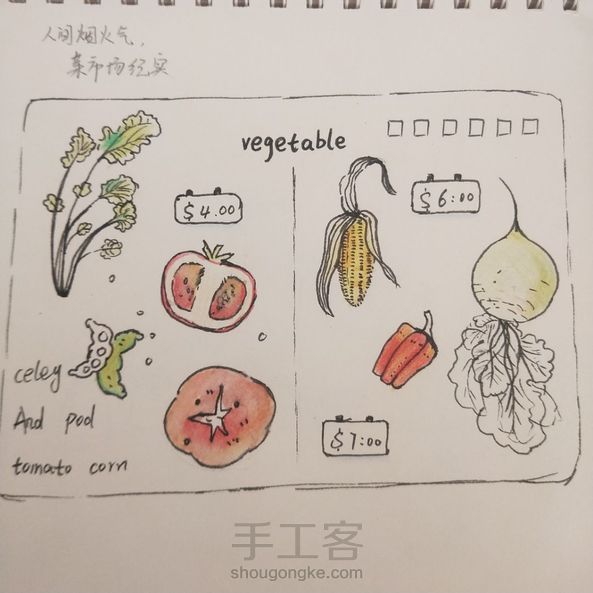 人间烟火气，
菜市场纪实
vegetable
$4.00
$6:00
celey
And pod
tomato corn
$7:00
手工客
shougongke.com